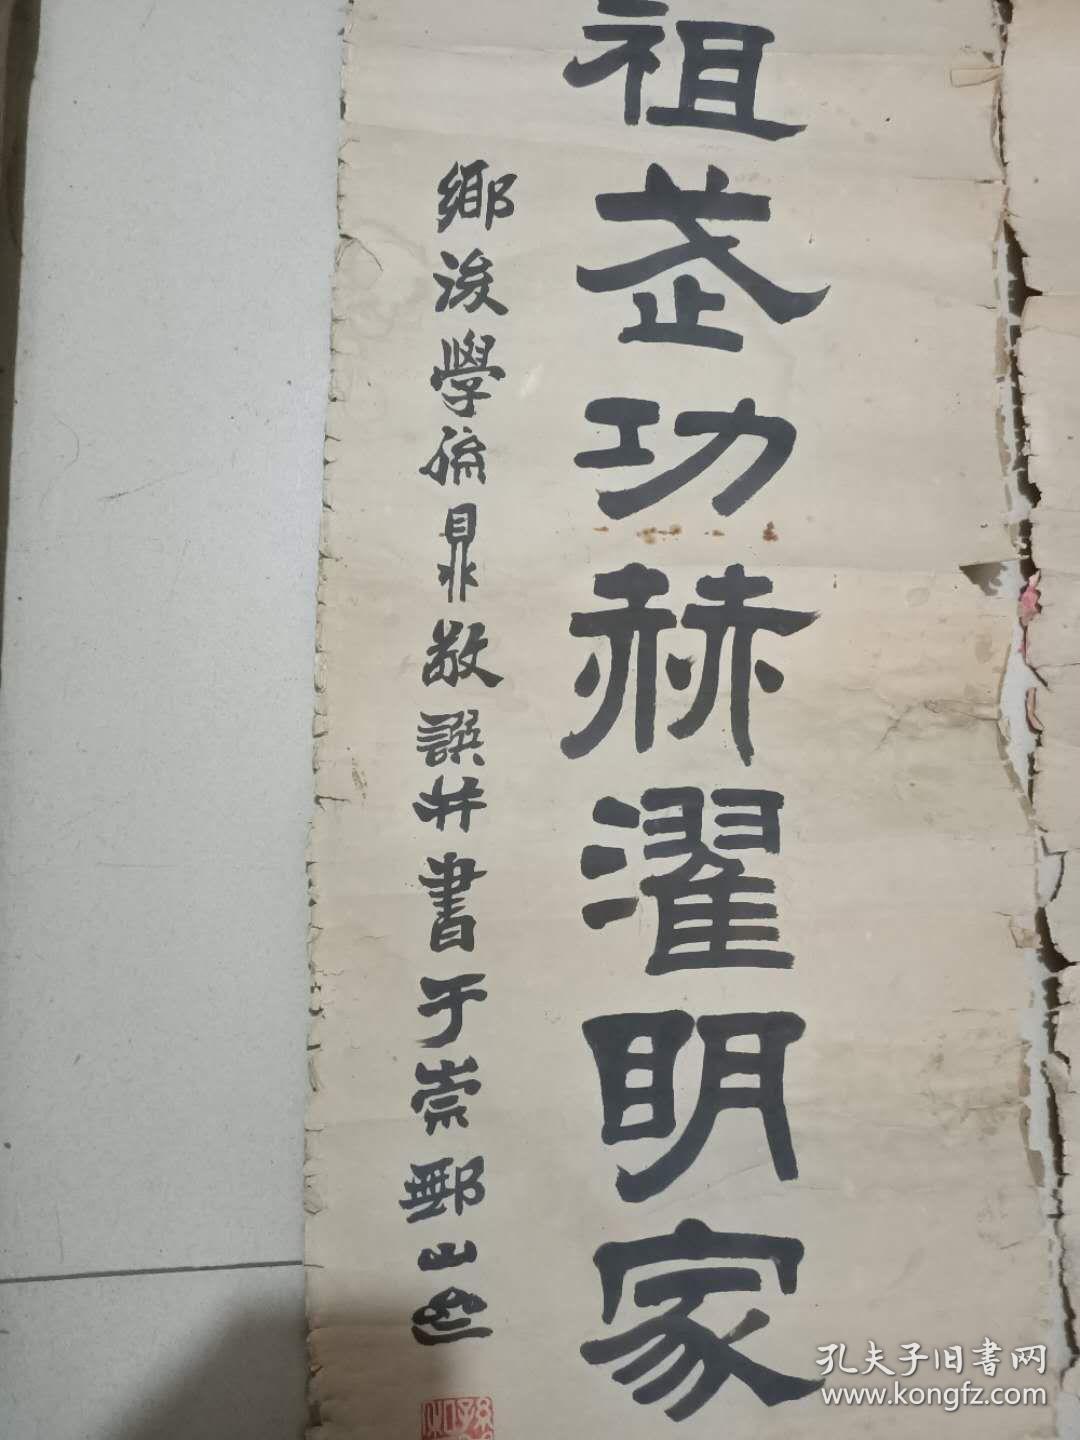 祖武功赫濯明家
鄉後學孫鼎敬譔并書于崇鄦山
孔夫子旧書网
www.kongfz.com